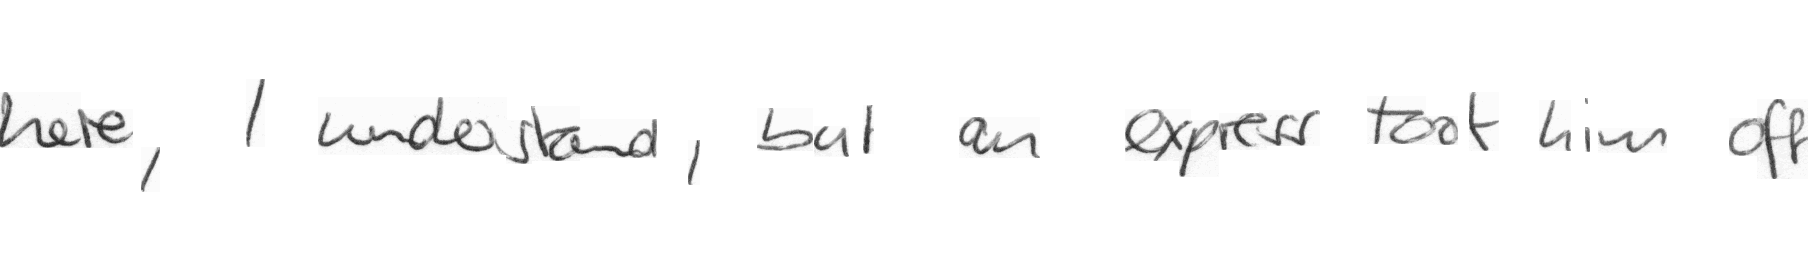 here, I understand, but an express took him off